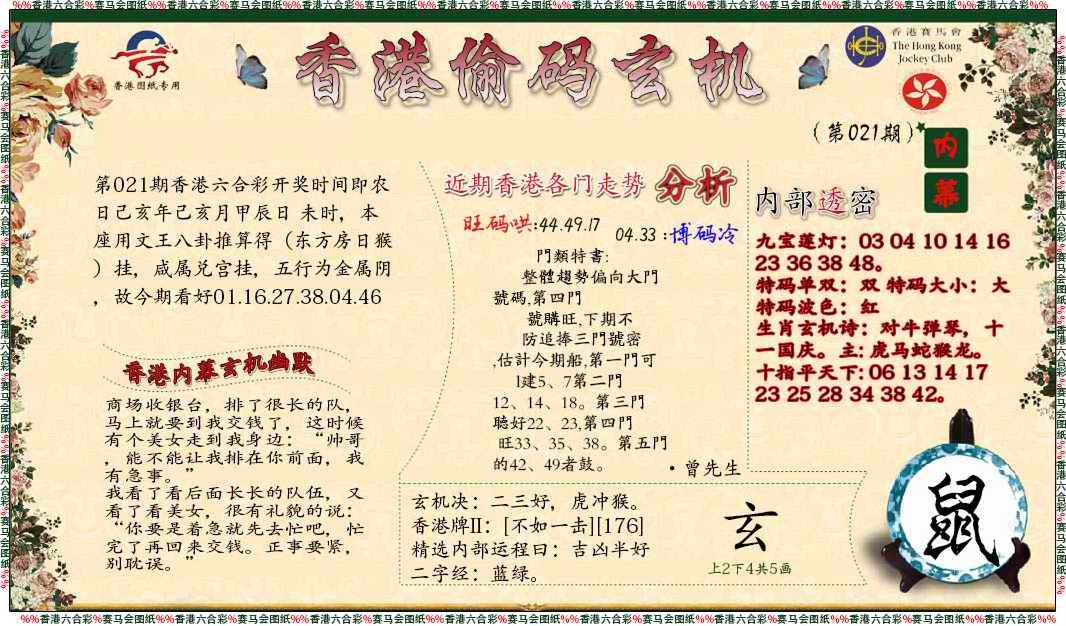 %%香港六合彩%赛马会图纸%%香港六合彩%赛马会图纸%%香港六合彩%赛马会图纸%%香港六合彩%赛马会图纸%%香港六合彩%赛马会图纸%%香港六合彩%%
香港图纸专用
香港偷码玄机
香港賽馬會
The Hong Kong
Jockey Club
（第021期）
内
幕
第021期香港六合彩开奖时间即农
日己亥年己亥月甲辰日 未时，本
座用文王八卦推算得（东方房日猴
）挂，咸属兑宫挂，五行为金属阴
，故今期看好01.16.27.38.04.46
香港内幕玄机幽默
商场收银台，排了很长的队，
马上就要到我交钱了，这时候
有个美女走到我身边：“帅哥
，能不能让我排在你前面，我
有急事。”
我看了看后面长长的队伍，又
看了看美女，很有礼貌的说：
“你要是着急就先去忙吧，忙
完了再回来交钱。正事要紧，
别耽误。”
近期香港各门走势 分析
旺码哄:44.49.17
04.33 :博码冷
門類特書:
整體趨勢偏向大門
號碼,第四門
號購旺,下期不
防追捧三門號密
,估計今期船,第一門可
1建5、7第二門
12、14、18。第三門
聽好22、23,第四門
旺33、35、38。第五門
的42、49者鼓。
・曾先生
内部透密
九宝莲灯：03 04 10 14 16
23 36 38 48。
特码单双：双 特码大小：大
特码波色：红
生肖玄机诗：对牛弹琴，十
一国庆。主: 虎马蛇猴龙。
十指平天下: 06 13 14 17
23 25 28 34 38 42。
玄机决：二三好，虎冲猴。
香港牌II：[不如一击][176]
精选内部运程曰：吉凶半好
二字经：蓝绿。
玄
上2下4共5画
鼠
%%香港六合彩%赛马会图纸%%香港六合彩%赛马会图纸%%香港六合彩%赛马会图纸%%香港六合彩%赛马会图纸%%香港六合彩%赛马会图纸%%香港六合彩%%